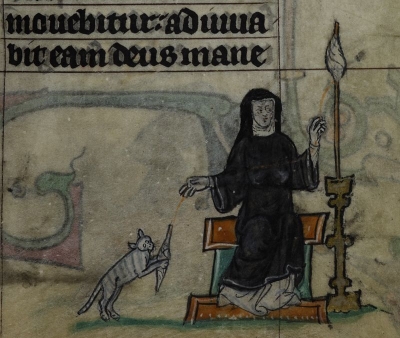 movebitur: adiuua
bit eam deus mane